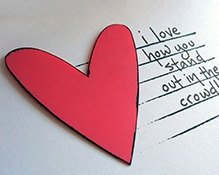 i love
how you
stand
out in the
crowd